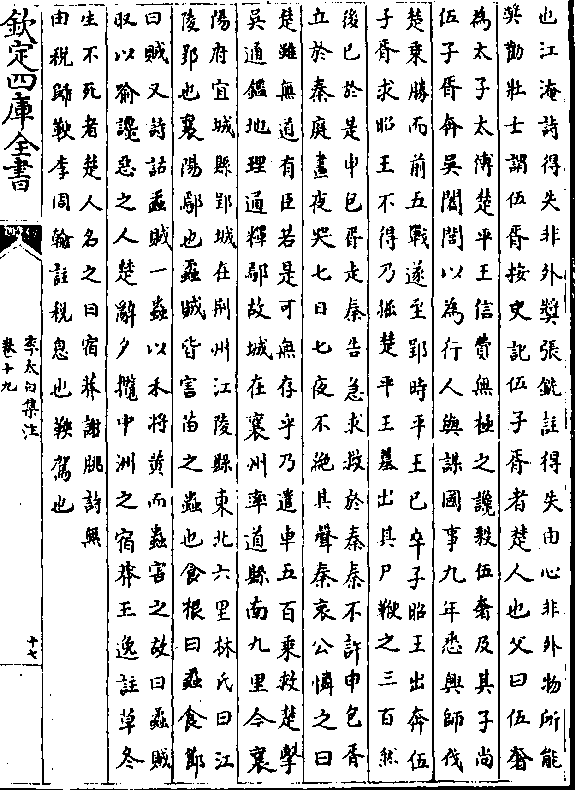 也江淹詩得失非外奬張銑註得失由心非外物所能
奬勸壯士謂伍胥按史記伍子胥者楚人也父曰伍奢
為太子太傅楚平王信費無極之讒殺伍奢及其子尚
伍子胥奔吳闔閭以為行人與謀國事九年悉興師伐
楚乘勝而前五戰遂至郢時平王已卒子昭王出奔伍
子胥求昭王不得乃掘楚平王墓出其尸鞭之三百然
後已於是申包胥走秦告急求救於秦秦不許申包胥
立於秦庭晝夜哭七日七夜不絶其聲秦哀公憐之曰
楚雖無道有臣若是可無存乎乃遣車五百乘救楚擊
吳通鑑地理通釋鄢故城在襄州率道縣南九里今襄
陽府宜城縣郢城在荆州江陵縣東北六里林氏曰江
陵郢也襄陽鄢也蟊賊皆害苗之蟲也食根曰蟊食節
曰賊又詩詁蟊賊一蟲以禾將黄而蟲害之故曰蟊賊
収以喻讒惡之人楚辭夕攬中洲之宿莽王逸註草冬
生不死者楚人名之曰宿莽謝朓詩無
由税歸鞅李周翰註税息也鞅駕也
欽定四庫全書
李太白集注
卷十九
十七